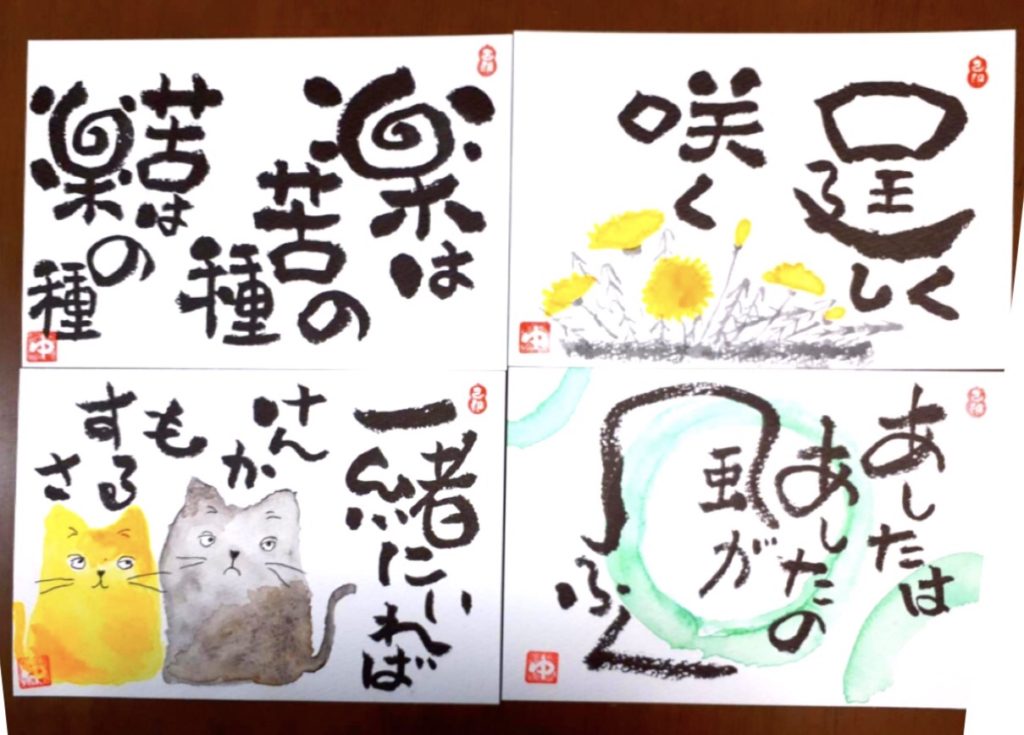 楽は
苦の
種
苦は
楽の
種
逞しく
咲く
一緒にいれば
けんか
も
する
さ
あしたは
あしたの
風が
ふく